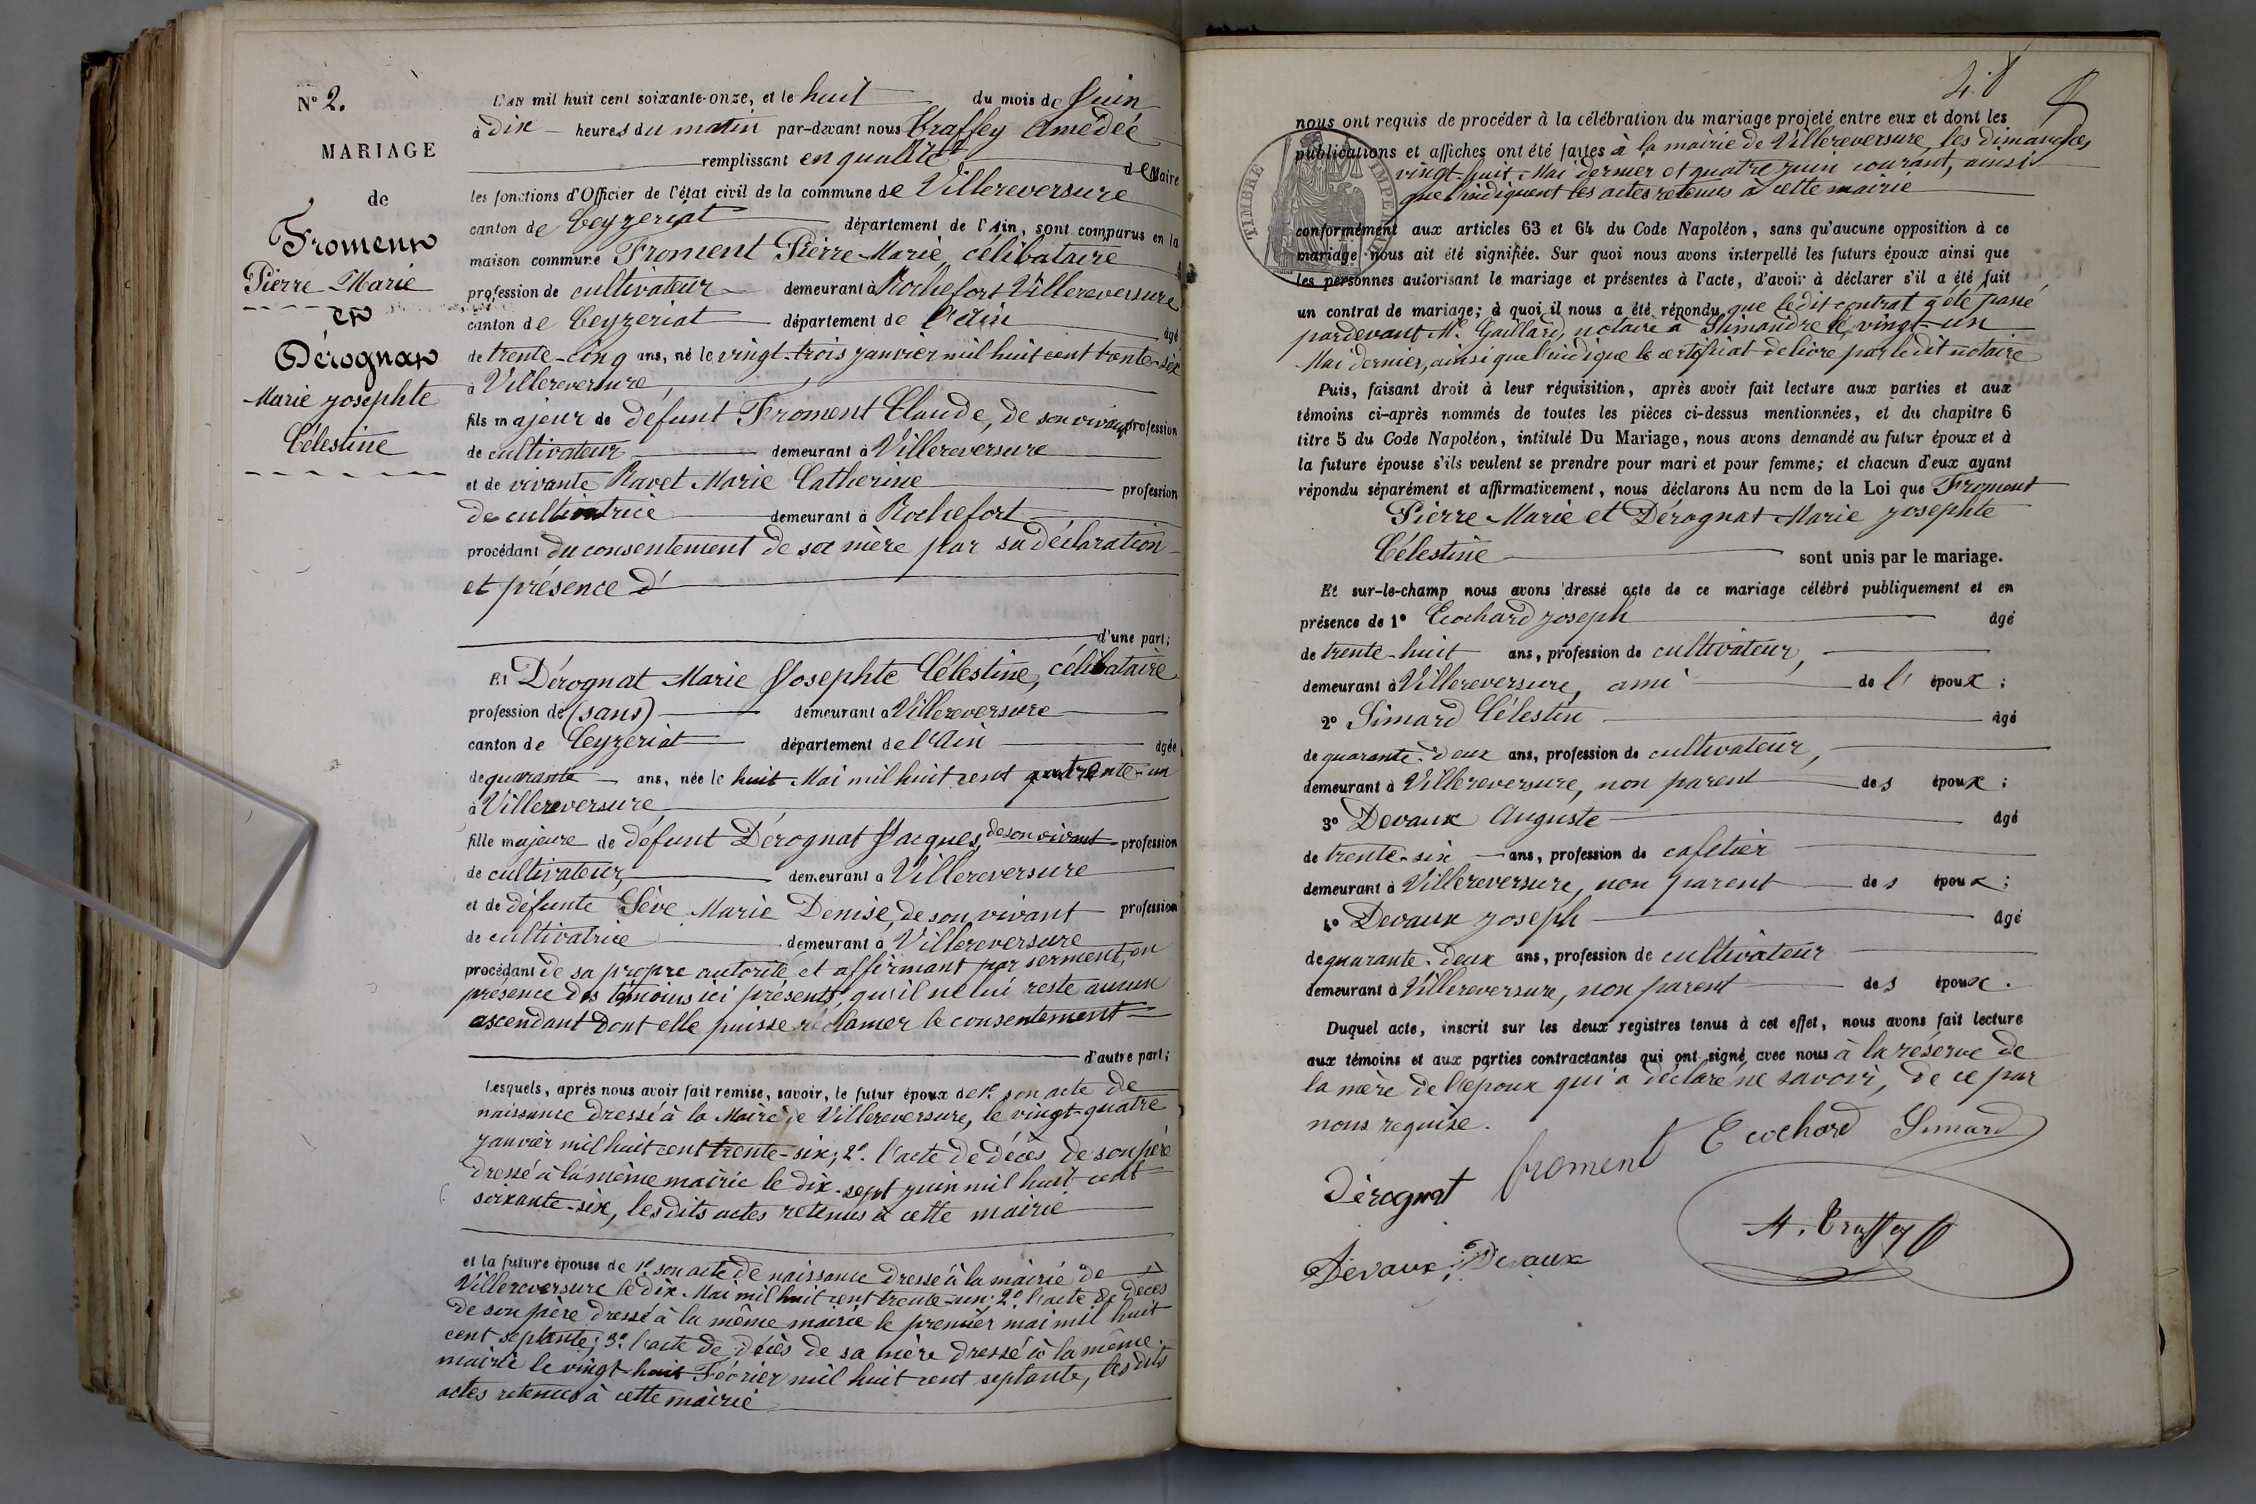 N° 2.
MARIAGE
de
Froment
Pierre Marie
et
Dérognat
Marie Josephte
Célestine
L'AN mil huit cent soixante-onze, et le huit du mois de Juin
à dix heures du matin par-devant nous Traffey Amédée
remplissant en qualité de Maire
les fonctions d'Officier de l'état civil de la commune de Villereversure
canton de Ceyzeriat département de l'Ain, sont comparus en la
maison commune Froment Pierre Marie, célibataire
profession de cultivateur demeurant à Rochefort Villereversure
canton de Ceyzeriat département de l'Ain âgé
de trente-cinq ans, né le vingt-trois janvier mil huit cent trente-six
à Villereversure,
fils majeur de défunt Froment Claude, de son vivant profession
de cultivateur demeurant à Villereversure
et de vivante Ravet Marie Catherine profession
de cultivatrice demeurant à Rochefort
procédant du consentement de sa mère par sa déclaration
et présence d'
d'une part;
Et Dérognat Marie Josephte Célestine, célibataire
profession de (sans) demeurant à Villereversure
canton de Ceyzeriat département de l'Ain âgée
de quarante ans, née le huit Mai mil huit cent trente-un
à Villereversure
fille majeure de défunt Dérognat Jacques, de son vivant profession
de cultivateur, demeurant à Villereversure
et de défunte Sève Marie Denise, de son vivant profession
de cultivatrice demeurant à Villereversure
procédant de sa propre autorité et affirmant par serment, en
présence des témoins ici présents, qu'il ne lui reste aucun
ascendant dont elle puisse réclamer le consentement
d'autre part;
Lesquels, après nous avoir fait remise, savoir, le futur époux de 1° son acte de
naissance dressé à la Mairie de Villereversure, le vingt-quatre
janvier mil huit cent trente-six; 2°. l'acte de décès de son père
dressé à la même mairie le dix-sept juin mil huit cent
soixante-six, lesdits actes retenus à cette mairie
et la future épouse de 1°. son acte de naissance dressé à la mairie de
Villereversure le dix Mai mil huit cent trente-un; 2° l'acte de décès
de son père dressé à la même mairie le premier mai mil huit
cent septante; 3°. l'acte de décès de sa mère dressé à la même
mairie le vingt-huit Février mil huit cent septante, lesdits
actes retenus à cette mairie
TIMBRE IMPERIAL
nous ont requis de procéder à la célébration du mariage projeté entre eux et dont les
publications et affiches ont été faites à la mairie de Villereversure, les dimanches
vingt-huit Mai dernier et quatre juin courant, ainsi
que l'indiquent les actes retenus à cette mairie
conformément aux articles 63 et 64 du Code Napoléon, sans qu'aucune opposition à ce
mariage nous ait été signifiée. Sur quoi nous avons interpellé les futurs époux ainsi que
les personnes autorisant le mariage et présentes à l'acte, d'avoir à déclarer s'il a été fait
un contrat de mariage; à quoi il nous a été répondu que ledit contrat a été passé
pardevant Me. Gaillard, notaire à Simandre le vingt-un
Mai dernier, ainsi que l'indique le certificat délivré par ledit notaire
Puis, faisant droit à leur réquisition, après avoir fait lecture aux parties et aux
témoins ci-après nommés de toutes les pièces ci-dessus mentionnées, et du chapitre 6
titre 5 du Code Napoléon, intitulé Du Mariage, nous avons demandé au futur époux et à
la future épouse s'ils veulent se prendre pour mari et pour femme; et chacun d'eux ayant
répondu séparément et affirmativement, nous déclarons Au nom de la Loi que Froment
Pierre Marie et Dérognat Marie Josephte
Célestine sont unis par le mariage.
Et sur-le-champ nous avons dressé acte de ce mariage célébré publiquement et en
présence de 1° Ecochard Joseph âgé
de trente-huit ans, profession de cultivateur,
demeurant à Villereversure, ami de l' époux;
2° Simard Célestin âgé
de quarante-deux ans, profession de cultivateur,
demeurant à Villereversure, non parent des époux;
3° Devaux Auguste âgé
de trente-six ans, profession de cafetier
demeurant à Villereversure, non parent des époux;
4° Devaux Joseph âgé
de quarante-deux ans, profession de cultivateur
demeurant à Villereversure, non parent des époux.
Duquel acte, inscrit sur les deux registres tenus à cet effet, nous avons fait lecture
aux témoins et aux parties contractantes qui ont signé avec nous à la réserve de
la mère de l'époux qui a déclaré ne savoir, de ce par
nous requise.
Dérognat froment Ecochard Simard
Devaux Devaux A. Traffey